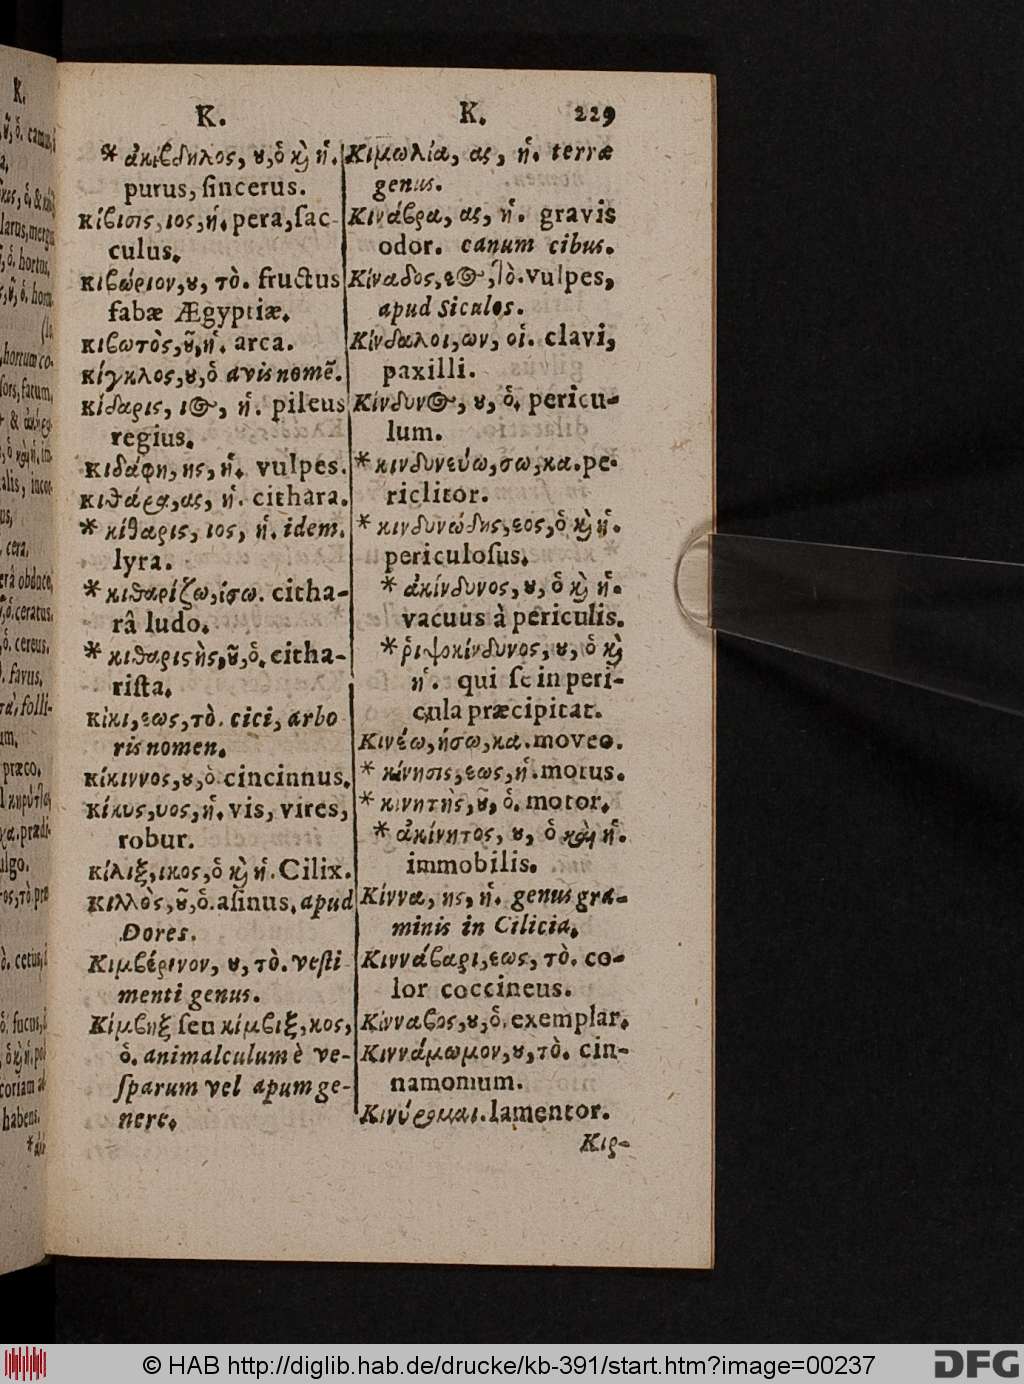 K.
* ἀκίβδηλος, ου, ὁ καὶ ἡ.
purus, ſincerus.
κίβισις, ιος, ἡ. pera, ſac-
culus.
κιβώριον, ου, τὸ. fructus
fabæ Ægyptiæ.
κιβωτὸς, οῦ, ἡ. arca.
κίγκλος, ου, ὁ avis nomẽ.
κίδαρις, ιος, ἡ. pileus
regius.
κιδάφη, ης, ἡ. vulpes.
κιθάρα, ας, ἡ. cithara.
* κίθαρις, ιος, ἡ. idem.
lyra.
* κιθαρίζω, ίσω. citha-
râ ludo.
* κιθαριστὴς, οῦ, ὁ. citha-
riſta.
κίκι, εως, τὸ. cici, arbo
ris nomen.
κίκιννος, ου, ὁ. cincinnus.
κίκυς, υος, ἡ. vis, vires,
robur.
κίλιξ, ικος, ὁ καὶ ἡ. Cilix.
κιλλὸς, οῦ, ὁ. aſinus, apud
Dores.
Κιμβέρινον, ου, τὸ. veſti
menti genus.
Κίμβηξ ſeu κίμβιξ, κος,
ὁ. animalculum è ve-
ſparum vel apum ge-
nere.
K. 229
Κιμωλία, ας, ἡ. terræ
genus.
Κινάβρα, ας, ἡ. gravis
odor. canum cibus.
Κίναδος, εος, τὸ. vulpes,
apud Siculos.
Κίνδαλοι, ων, οἱ. clavi,
paxilli.
Κίνδυνος, ου, ὁ. pericu-
lum.
* κινδυνεύω, σω, κα. pe-
riclitor.
* κινδυνώδης, εος, ὁ καὶ ἡ.
periculoſus.
* ἀκίνδυνος, ου, ὁ καὶ ἡ.
vacuus à periculis.
* ῥιψοκίνδυνος, ου, ὁ καὶ
ἡ. qui ſe in peri-
cula præcipitat.
Κινέω, ήσω, κα. moveo.
* κίνησις, εως, ἡ. motus.
* κινητὴς, οῦ, ὁ. motor.
* ἀκίνητος, ου, ὁ καὶ ἡ.
immobilis.
Κίννα, ης, ἡ. genus gra-
minis in Cilicia.
Κιννάβαρι, εως, τὸ. co-
lor coccineus.
Κίνναβος, ου, ὁ. exemplar.
Κιννάμωμον, ου, τὸ. cin-
namomum.
Κινύρομαι. lamentor.
Κιρ-
© HAB http://diglib.hab.de/drucke/kb-391/start.htm?image=00237
DFG